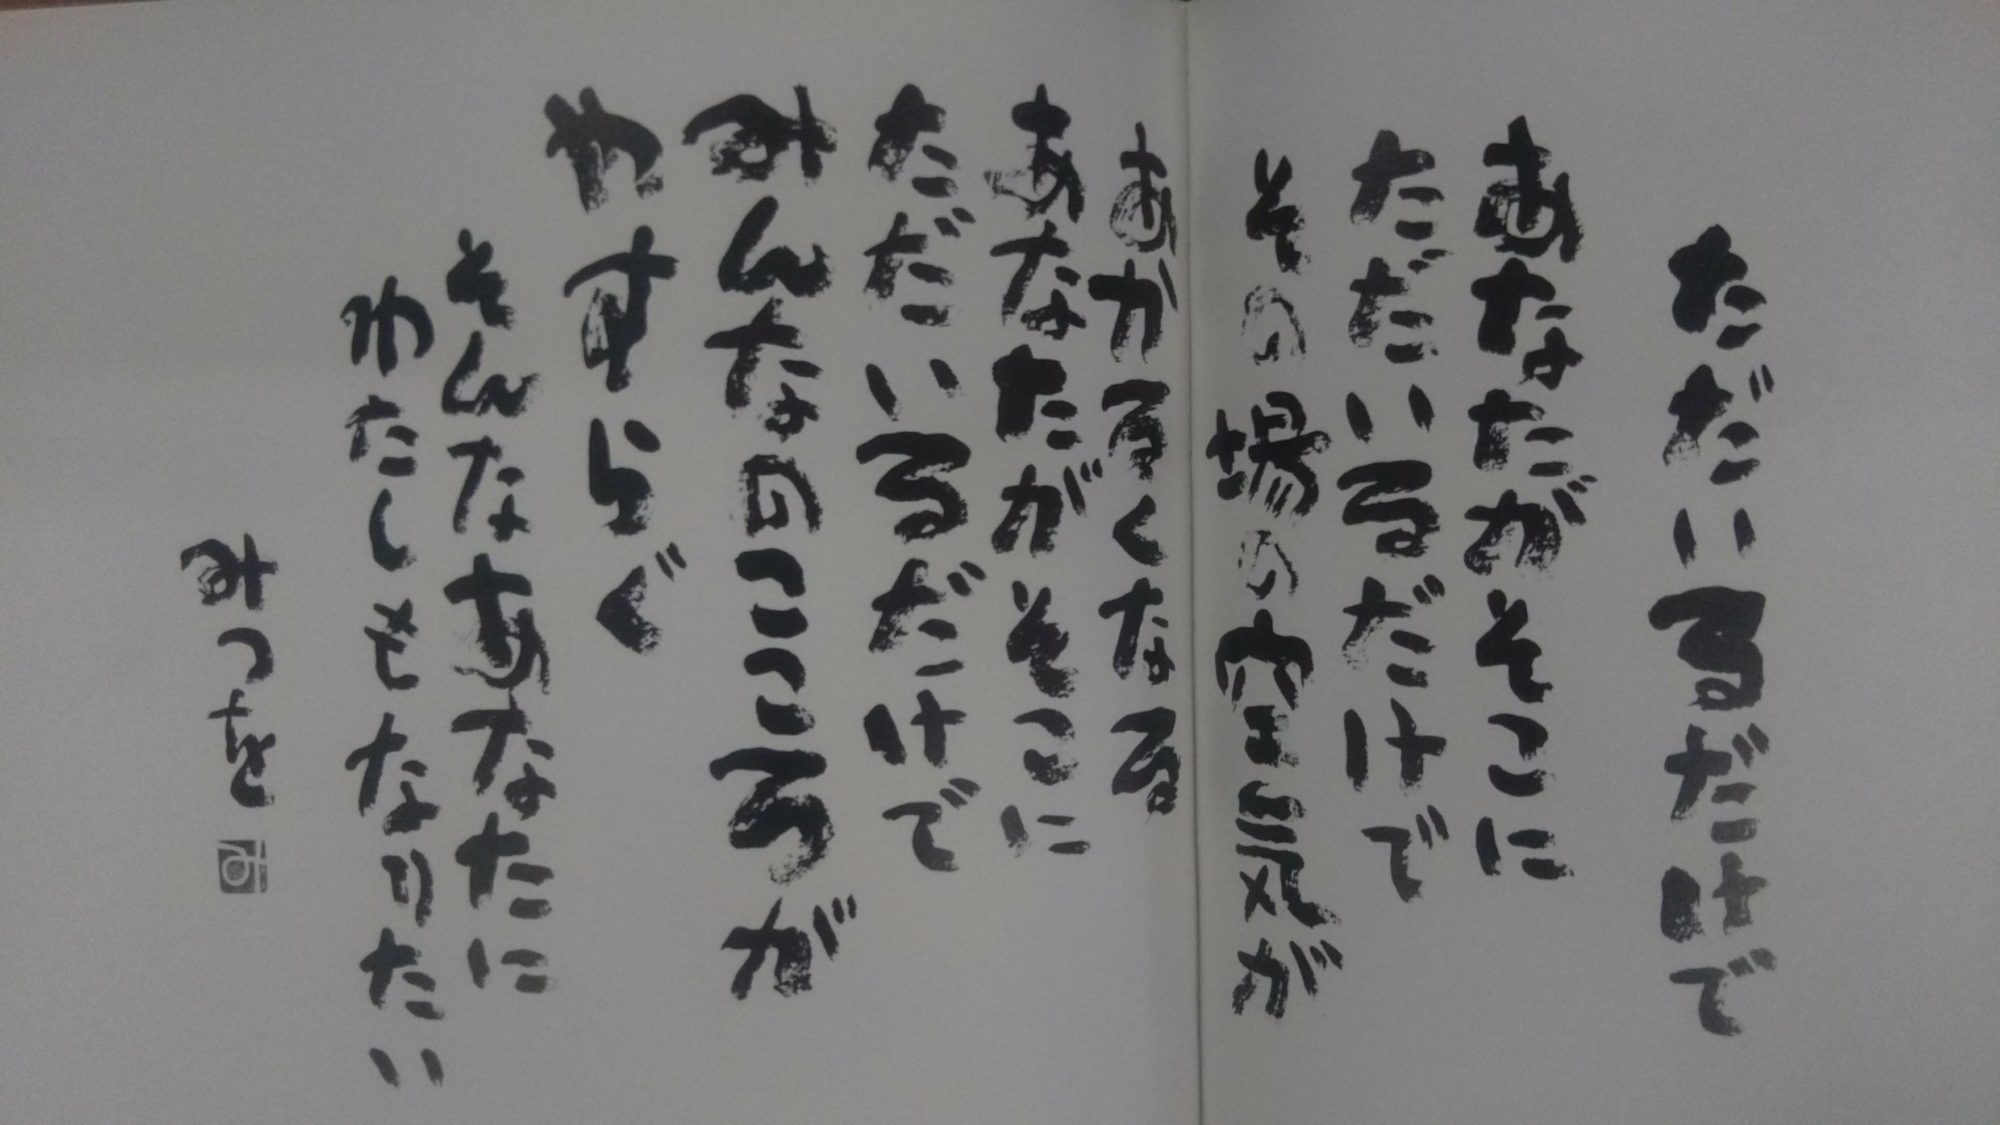 ただいるだけで
あなたがそこに
ただいるだけで
その場の空気が
あかるくなる
あなたがそこに
ただいるだけで
みんなのこころが
やすらぐ
そんなあなたに
わたしもなりたい
みつを
み